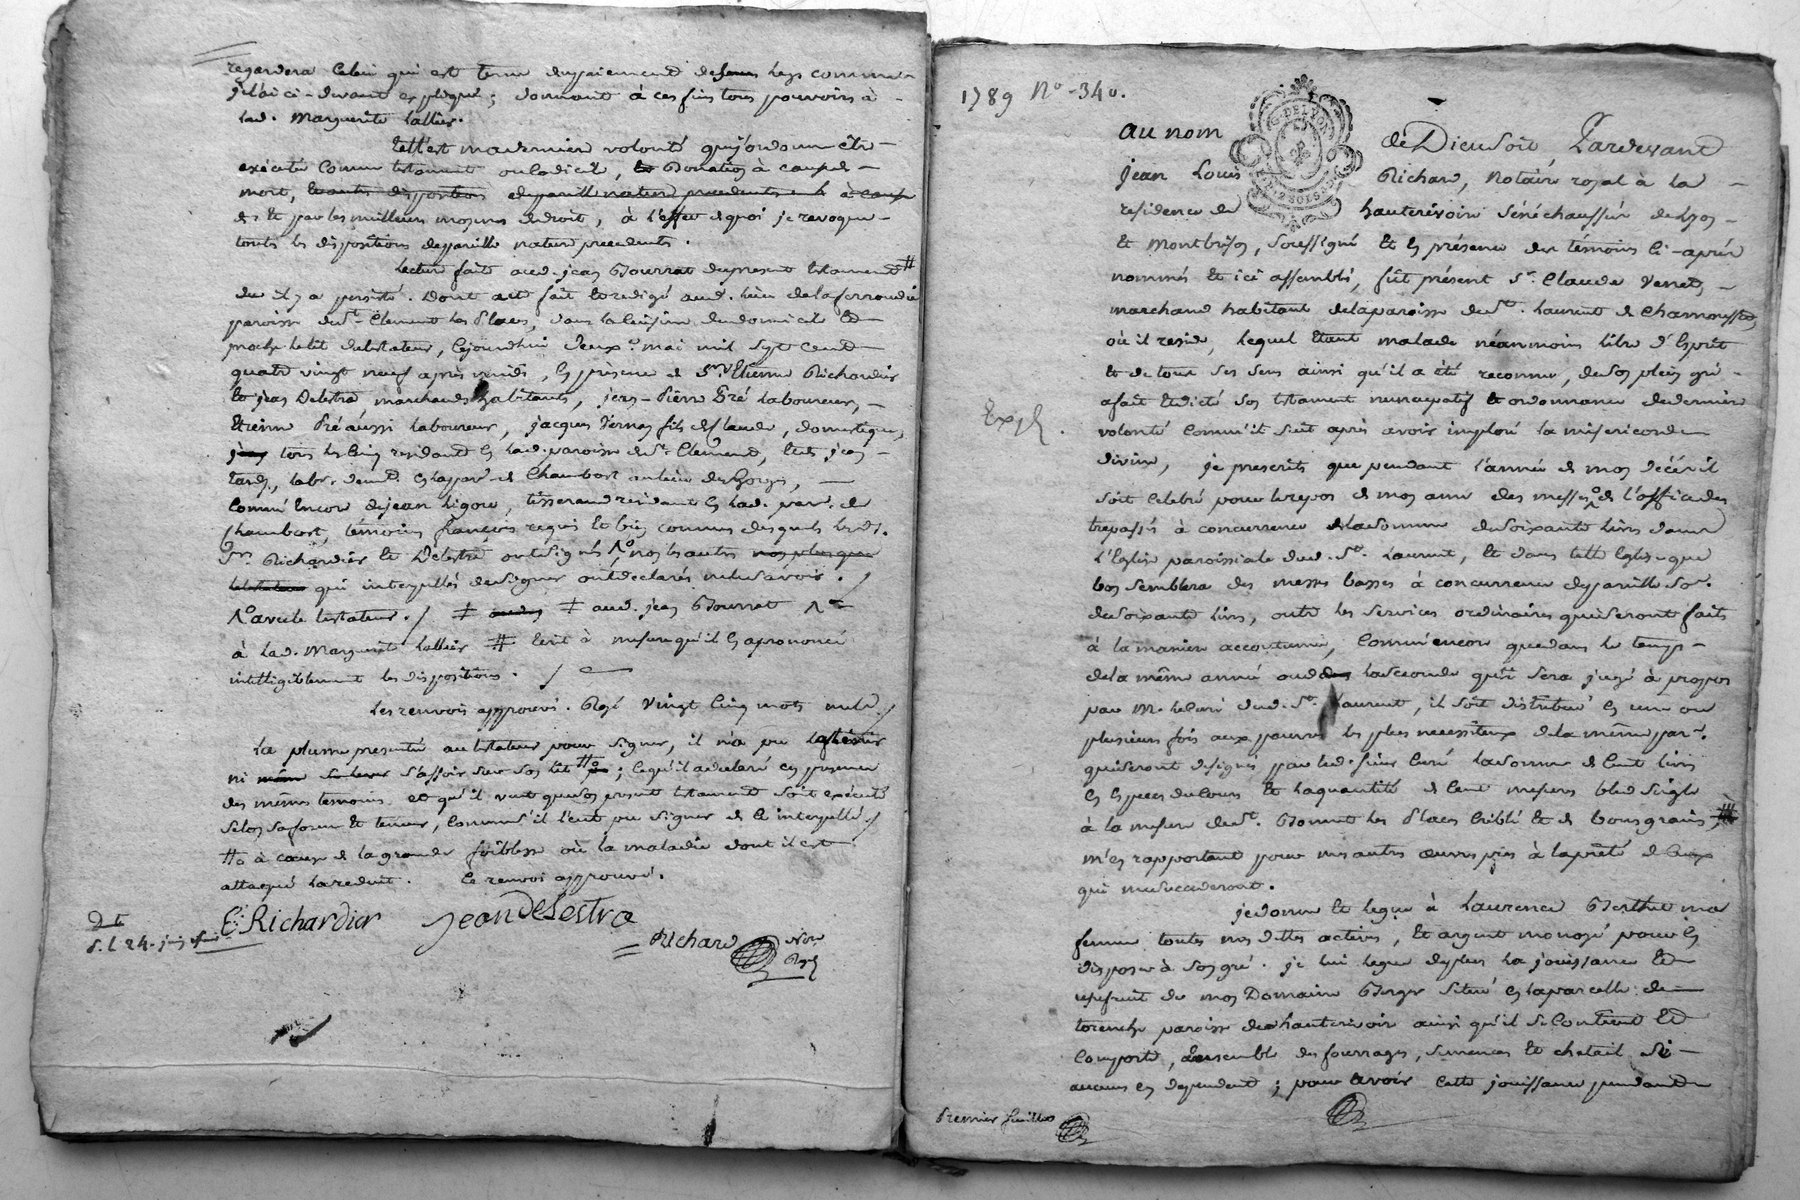 regardera celui qui est tenu du paiement desdits legs comme
je l'ai ci-devant expliqué ; donnant à ces fins tous pouvoirs à
lad. Marguerite Lallier.
telle est ma derniere volonté que j'ordonne être
executée comme testament ou codicil, donation à cause de
mort, et autres dispositions de pareille nature precedentes à cause
de et par les meilleurs moyens de droit, à l'effet de quoi je revoque
toutes les dispositions de pareille nature precedentes.
Lecture faite aud. jean Bourrat du present testament #
du il y a persisté. Dont acte fait et redigé aud. lieu de laferroudie
paroisse de St. Clement les Places, dans la cuisine du domicile et
proche le lit du testateur, cejourd'hui deux mai mil sept cent
quatre vingt neuf après midi, en présence de Srs. Etienne Richardier
et jean Delestra, marchands habitants, jean-Pierre Gré laboureur,
Etienne Pré aussi laboureur, jacques Vernay fils de Claude, domestique,
tous les cinq residant en lad. paroisse de St. Clement, et de jean
labr. demt. en la parr. de Chambost au lieu des Gorges,
comme encore de jean Ligou, tisserand residant en lad. parr. de
Chambost, témoins françois requis et bien connus desquels lesds.
Srs. Richardier et Delestra ont signés non les autres nos plus que
le testateur qui interpellés de signer ont declarés ne le savoir. /
avec le testateur. / ≠ ≠ aud. jean Bourrat
à lad. Marguerite Lallier # ecrit à mesure qu'il en a prononcé
intelligiblement les dispositions. /
Les renvois approuvés. Rayé vingt cinq mots nuls. /
La plume presentée au testateur pour signer, il n'a pu la tenir
ni même s'assoir sur son lit #o ; ce qu'il a declaré en presence
des mêmes temoins et qu'il veut que son present testament soit executé
selon sa forme et teneur, comme s'il l'eut pu signer de ce interpellé. /
#o à cause de la grande foiblesse où la maladie dont il est
attaqué la reduit. Ce renvoi approuvé.
E. Richardier Jean DeLestra
Richard Nore
Royl
1789 No. 340.
G. DE LYON
au nom de Dieu soit Pardevant
Jean Louis Richard, Notaire royal à la
residence de hauterivoire sénéchaussée de Lyon
et Montbrison, soussigné et en présence des témoins ci-après
nommés et ici assemblés, fût présent Sr. Claude Venet
marchand habitant de la paroisse de St. Laurent de Chamousset,
où il reside, lequel étant malade néanmoins libre d'esprit
et de tous ses sens ainsi qu'il a été reconnu, de son plein gré
a fait et dicté son testament nuncupatif et ordonnance de derniere
volonté comme il suit après avoir imploré la misericorde
Expé.
divine, je prescrits que pendant l'année de mon décès il
soit celebré pour le repos de mon ame des messes de l'office des
trepassés à concurrence de la somme de soixante livres dans
l'Eglise paroissiale dud. St. Laurent, et dans telle Eglise que
bon semblera des messes basses à concurrence de pareille so.
de soixante livres, outre les services ordinaires qui seront faits
à la maniere accoutumée, comme encore que dans le temps
de la même année ou de la seconde qu'il sera jugé à propos
par Mr. le curé dud. St. Laurent, il soit distribué en une ou
plusieurs fois aux pauvres les plus necessiteux de la même parr.
qui seront designés par led. sieur curé la somme de cent livres
en especes de cours et la quantité de cent mesures bled seigle
à la mesure de St. Bonnet les Places criblé et de bons grains, #
m'en rapportant pour mes autres œuvres pies à la pieté de ceux
qui me succederont.
je donne et legue à Laurence Berthet ma
femme toutes mes dettes actives, et argent monoyé pour en
disposer à son gré. je lui legue de plus la jouissance et
usufruit de mon Domaine Berger situé en la parcelle de
torenche paroisse de hauterivoire ainsi qu'il se contient et
comporte, ensemble des fourrages, semences et cheptail si
aucuns en dependent ; pour avoir cette jouissance pendant
Premier feuillet